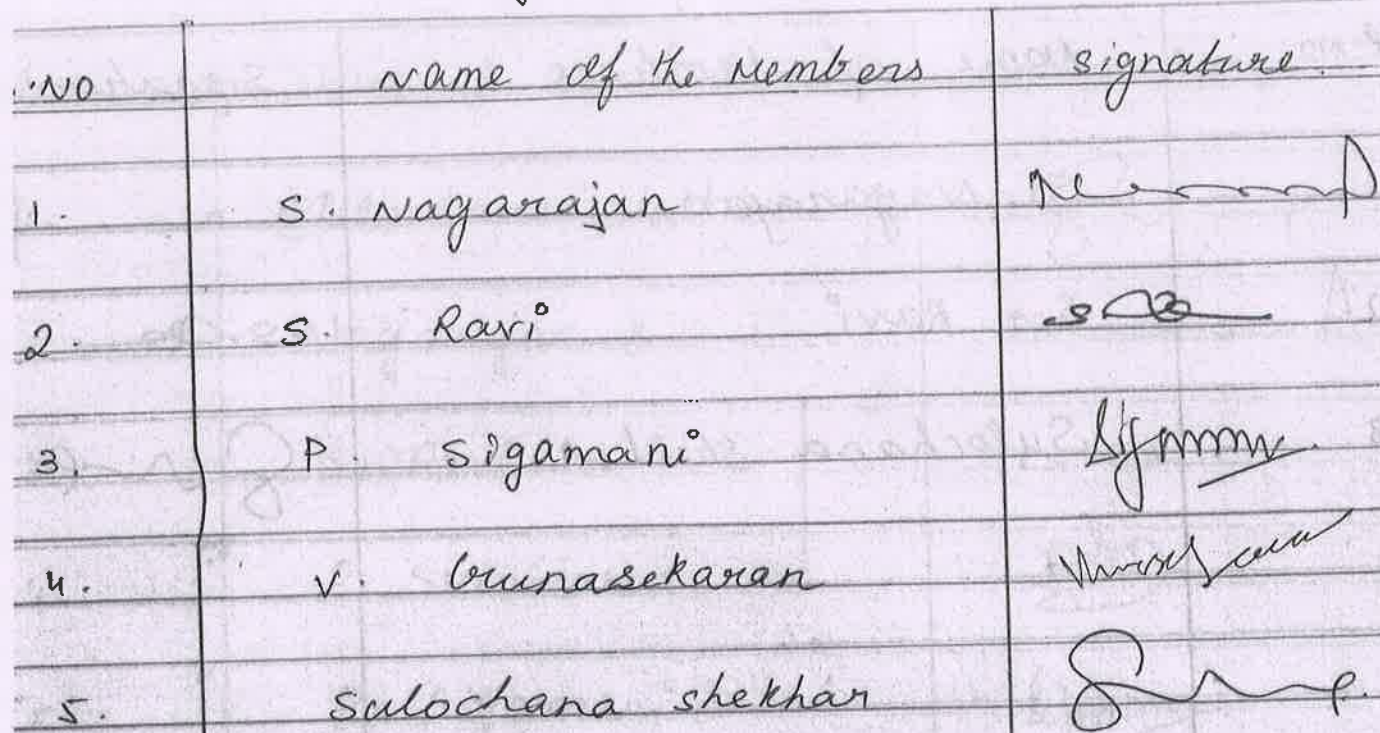 .NO Name of the Members signature.
1. S. Nagarajan
2. S. Ravi
3. P. Sigamani
4. V. Gunasekaran
5. Sulochana Shekhar